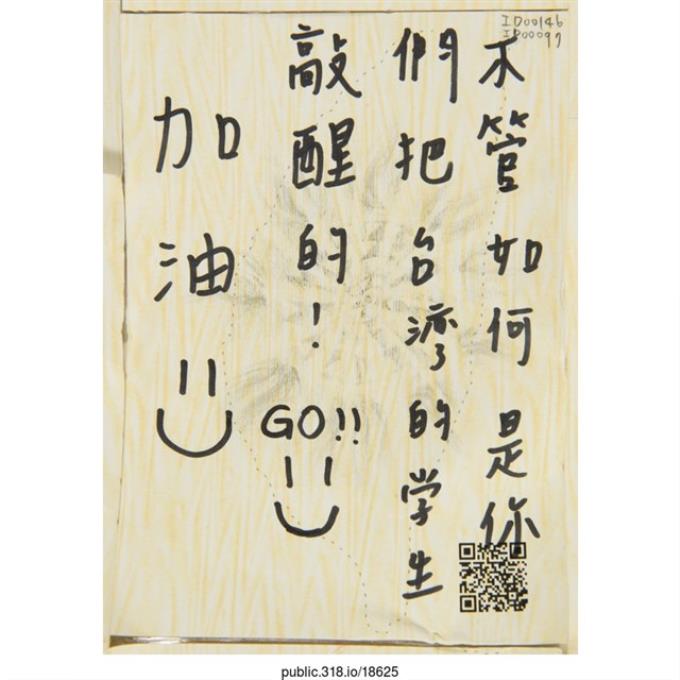 ID00146
IP00097
不管如何是你
們把台湾的学生
敲醒的！
GO!!
加油
public.318.io/18625